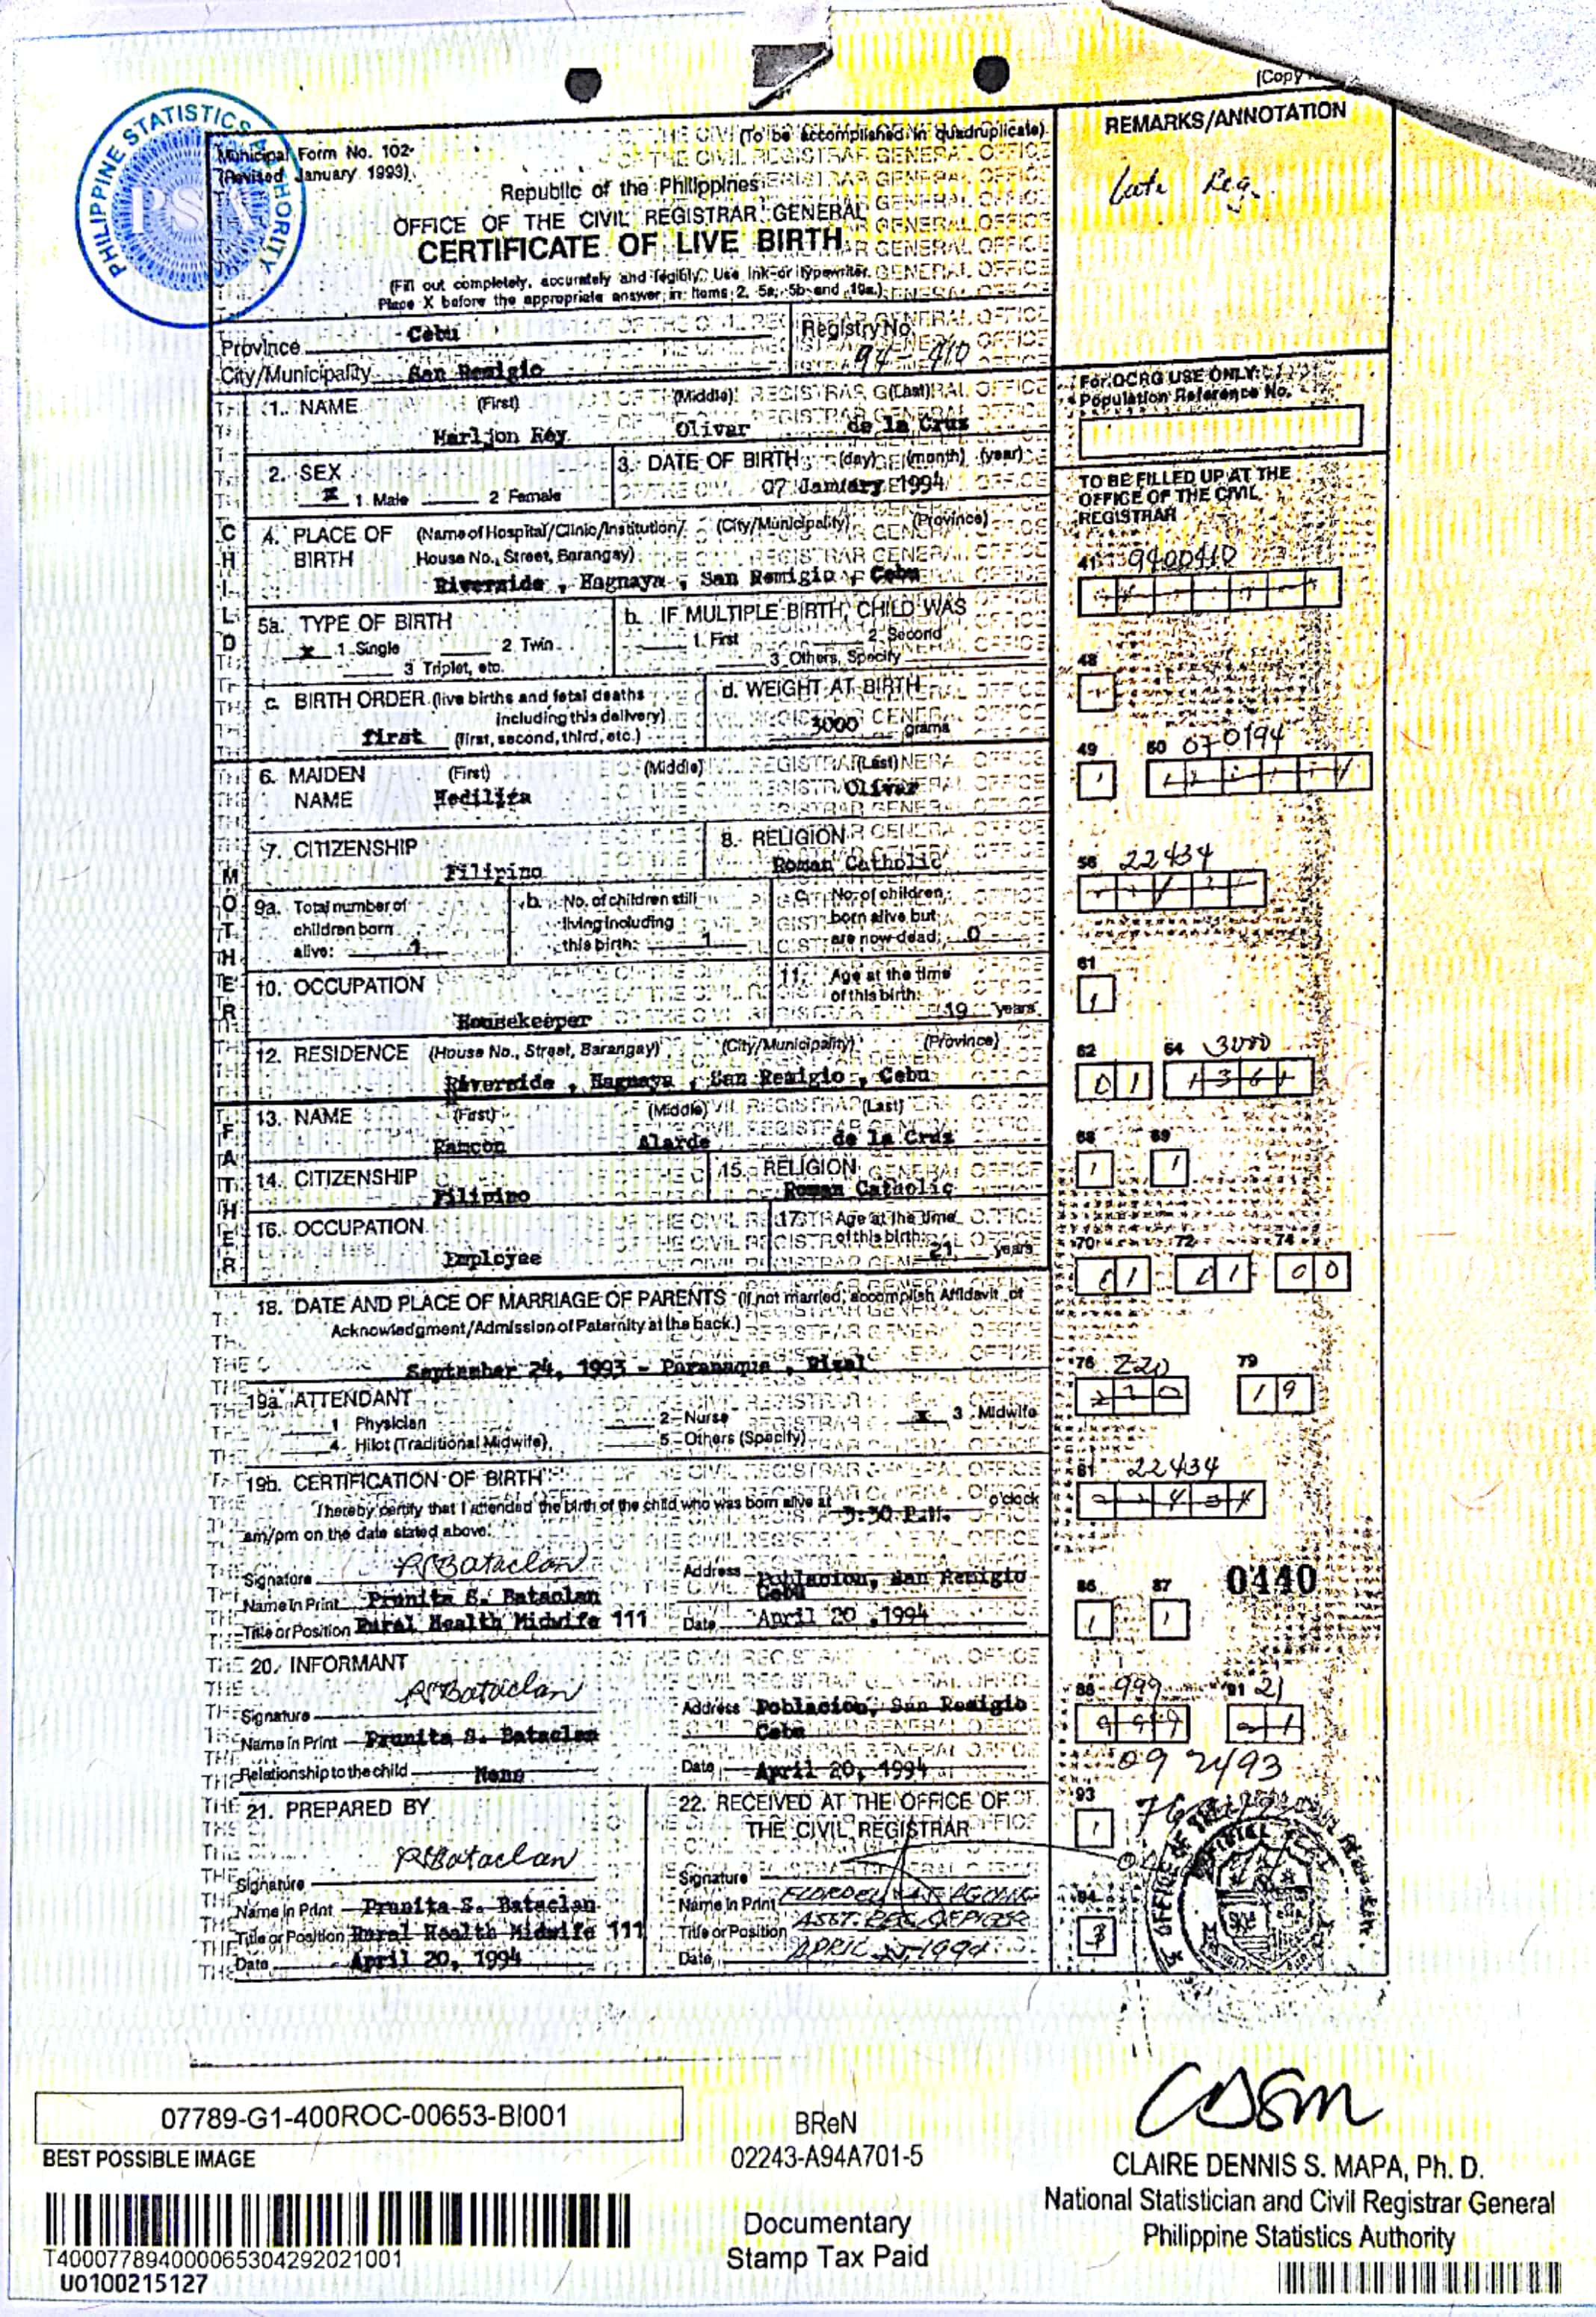 (Copy
PHILIPPINE STATISTICS AUTHORITY
PSA
Municipal Form No. 102
(Revised January 1993)
(To be accomplished in quadruplicate)
Republic of the Philippines
OFFICE OF THE CIVIL REGISTRAR GENERAL
CERTIFICATE OF LIVE BIRTH
(Fill out completely, accurately and legibly. Use ink or typewriter.
Place X before the appropriate answer in Items 2, 5a, 5b and 19a.)
REMARKS/ANNOTATION
Late Reg.
Province Cebu
City/Municipality San Remigio
Registry No.
94-410
For OCRG USE ONLY:
Population Reference No.
1. NAME (First) (Middle) (Last)
Marljon Rey Olivar de la Cruz
2. SEX
X 1 Male 2 Female
3. DATE OF BIRTH (day) (month) (year)
07 January 1994
TO BE FILLED UP AT THE
OFFICE OF THE CIVIL
REGISTRAR
CHILD
4. PLACE OF BIRTH (Name of Hospital/Clinic/Institution/ (City/Municipality) (Province)
House No., Street, Barangay)
Riverside , Hagnaya , San Remigio , Cebu
41 9400410
5a. TYPE OF BIRTH
x 1 Single 2 Twin
3 Triplet, etc.
b. IF MULTIPLE BIRTH, CHILD WAS
1. First 2 Second
3 Others, Specify
48
c. BIRTH ORDER (live births and fetal deaths
including this delivery)
first (first, second, third, etc.)
d. WEIGHT AT BIRTH
3000 grams
49 50 070194
1
MOTHER
6. MAIDEN NAME (First) (Middle) (Last)
Olivar
7. CITIZENSHIP
Filipino
8. RELIGION
Roman Catholic
56 22434
9a. Total number of
children born
alive: 1
b. No. of children still
living including
this birth: 1
c. No. of children
born alive but
are now dead: 0
61
1
10. OCCUPATION
Housekeeper
11. Age at the time
of this birth:
19 years
12. RESIDENCE (House No., Street, Barangay) (City/Municipality) (Province)
Riverside , Hagnaya , San Remigio , Cebu
62 64 3000
01
FATHER
13. NAME (First) (Middle) (Last)
Ramcon Alarde de la Cruz
68 69
1 1
14. CITIZENSHIP
Filipino
15. RELIGION
Roman Catholic
16. OCCUPATION
Employee
17. Age at the time
of this birth:
21 years
70 72 74
01 01 00
18. DATE AND PLACE OF MARRIAGE OF PARENTS (If not married, accomplish Affidavit of
Acknowledgment/Admission of Paternity at the back.)
September 24, 1993 - Paranaque , Rizal
76 220 79
19
19a. ATTENDANT
1 Physician 2 Nurse X 3 Midwife
4 Hilot (Traditional Midwife) 5 Others (Specify)
19b. CERTIFICATION OF BIRTH
I hereby certify that I attended the birth of the child who was born alive at 3:30 P.M. o'clock
am/pm on the date stated above.
81 22434
Signature PSBataclan
Name in Print Prunita S. Bataclan
Title or Position Rural Health Midwife 111
Address Poblacion, San Remigio
Cebu
Date April 20 ,1994
86 87 0440
1 1
20. INFORMANT
Signature PSBataclan
Name in Print Prunita S. Bataclan
Relationship to the child None
Address Poblacion, San Remigio
Cebu
Date April 20, 1994
88 999 91 21
092493
21. PREPARED BY
Signature PSBataclan
Name in Print Prunita S. Bataclan
Title or Position Rural Health Midwife 111
Date April 20, 1994
22. RECEIVED AT THE OFFICE OF
THE CIVIL REGISTRAR
Signature
Name in Print
Title or Position
Date
93
1
94
3
07789-G1-400ROC-00653-BI001
BEST POSSIBLE IMAGE
T400077894000065304292021001
U0100215127
BReN
02243-A94A701-5
Documentary
Stamp Tax Paid
CLAIRE DENNIS S. MAPA, Ph. D.
National Statistician and Civil Registrar General
Philippine Statistics Authority